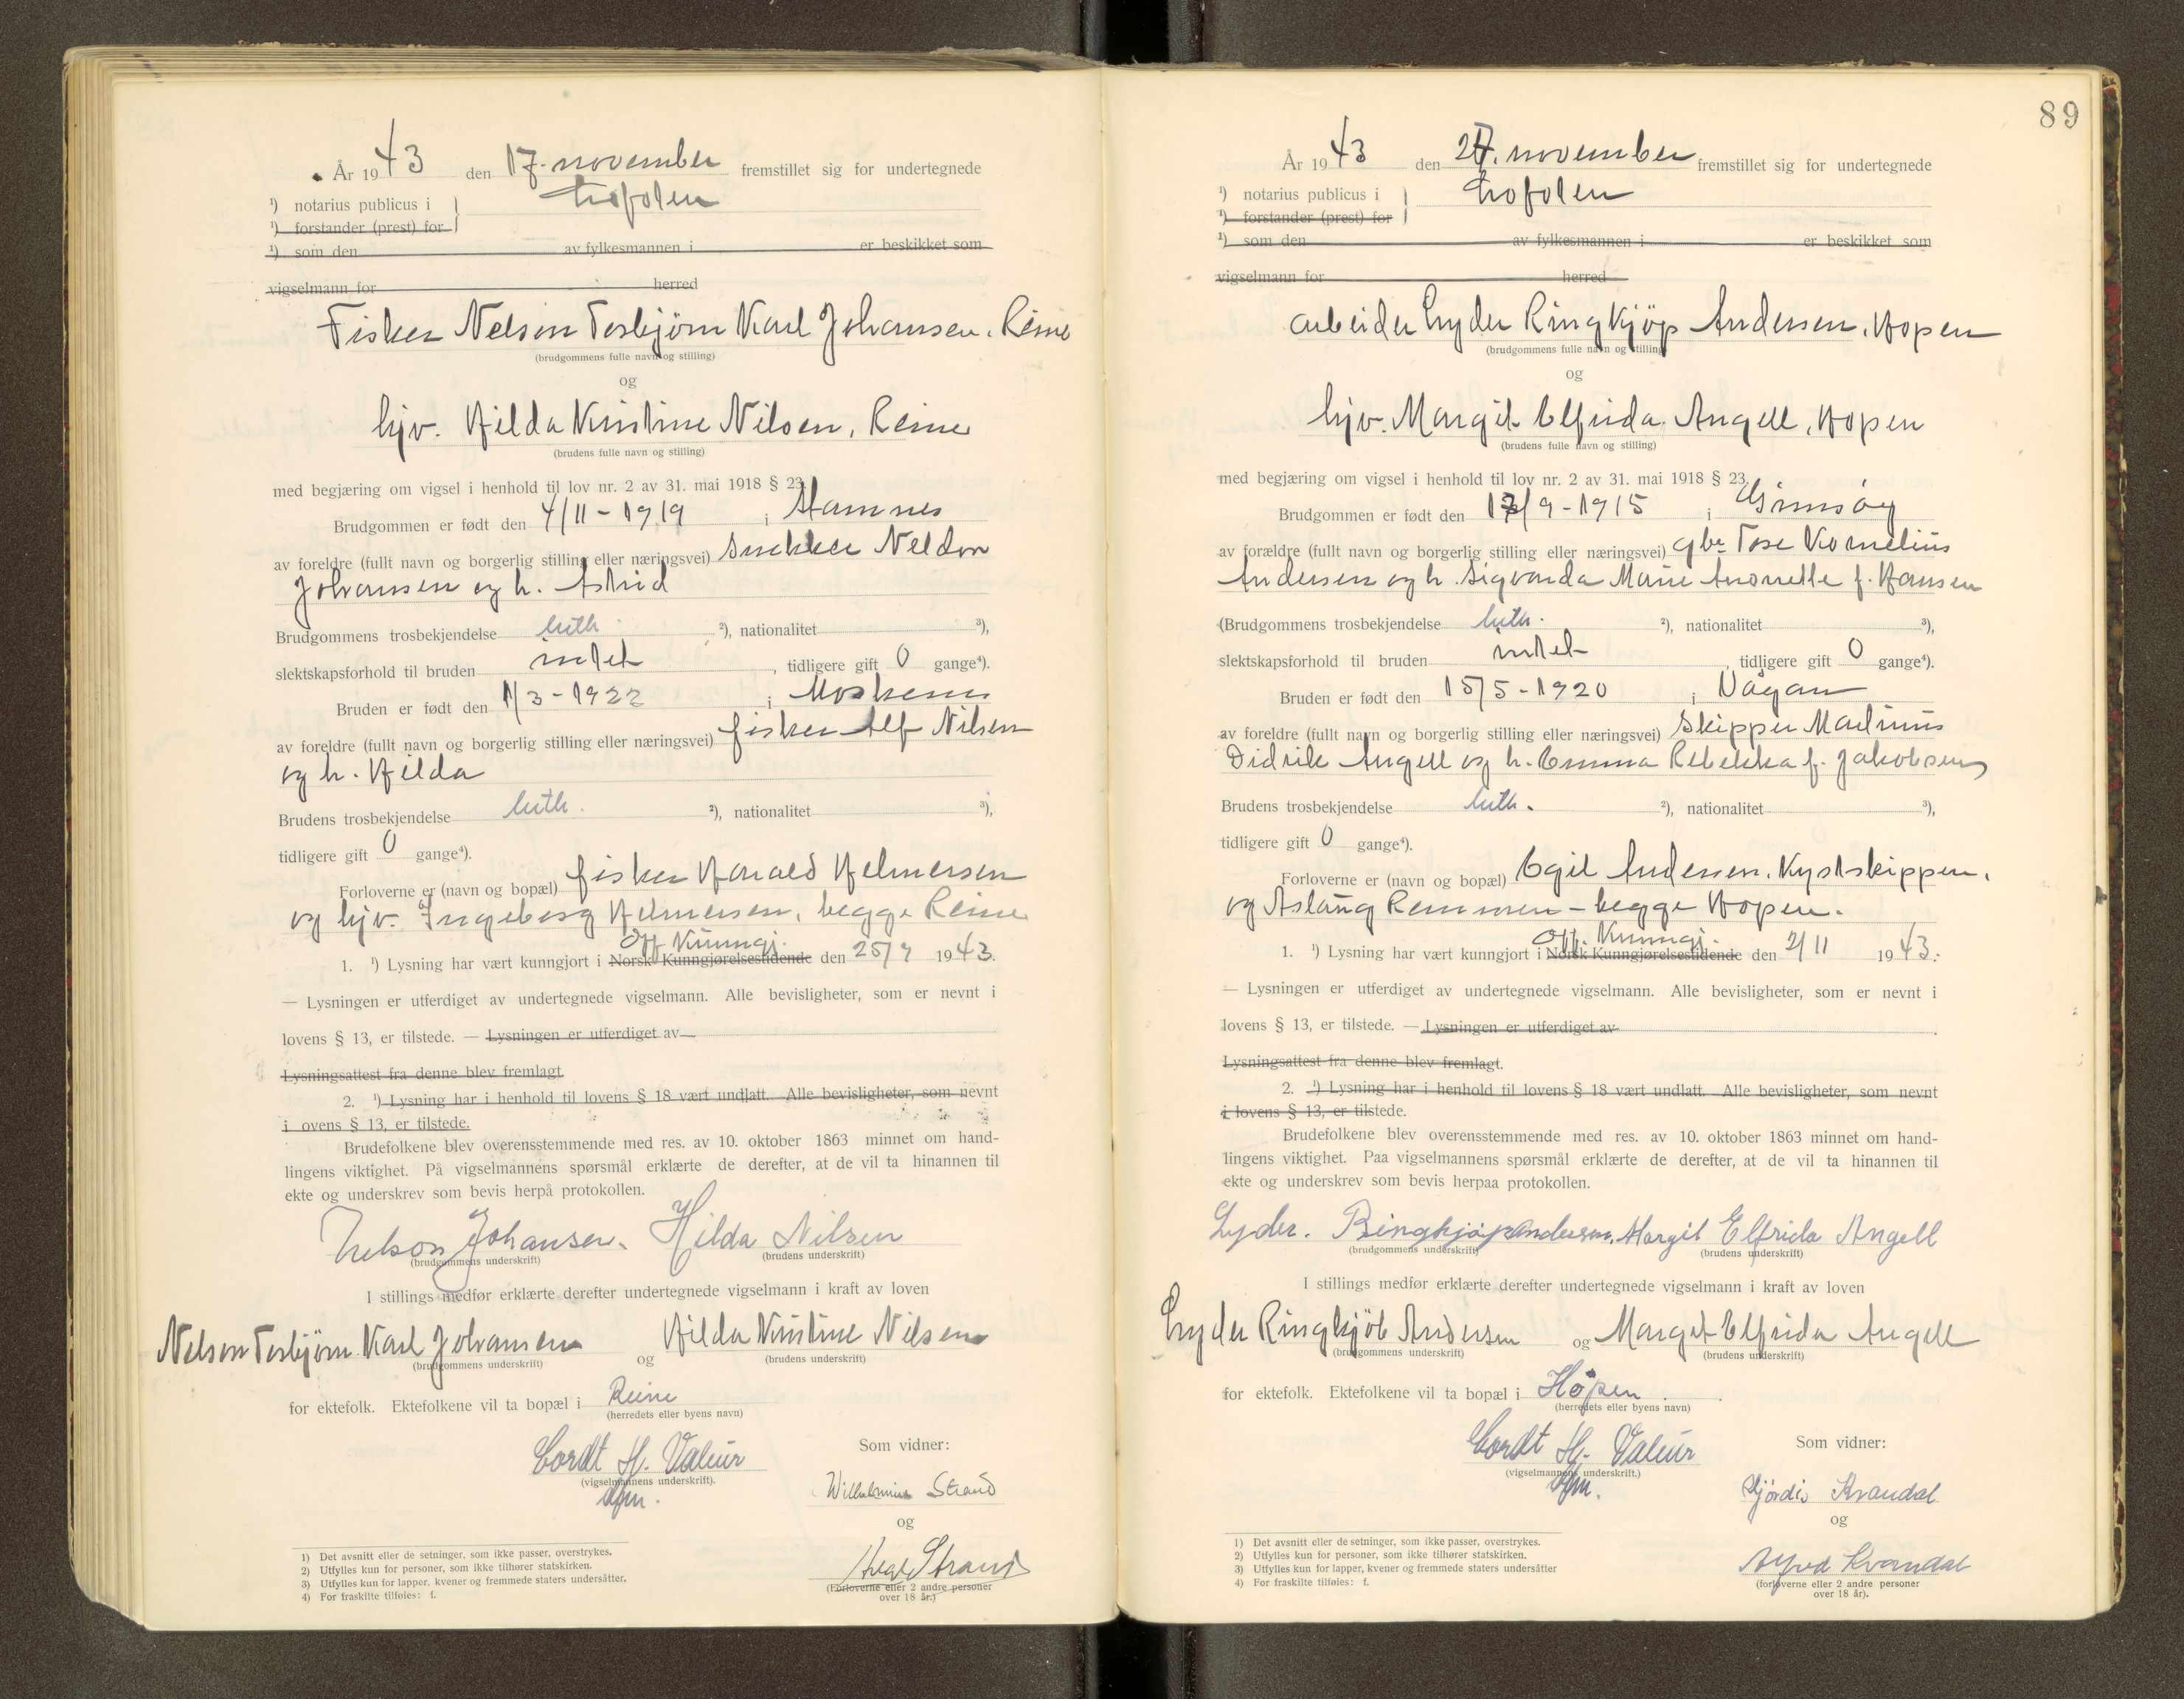 År 1943 den 17. november fremstillet sig for undertegnede
¹) notarius publicus i Lofoten
¹) forstander (prest) for
¹) som den av fylkesmannen i er beskikket som
vigselmann for herred
Fisker Nelson Torbjørn Karl Johansen, Reine
(brudgommens fulle navn og stilling)
og
hjv. Hilda Kristine Nilsen, Reine
(brudens fulle navn og stilling)
med begjæring om vigsel i henhold til lov nr. 2 av 31. mai 1918 § 23.
Brudgommen er født den 4/11-1919 i Hamnes
av foreldre (fullt navn og borgerlig stilling eller næringsvei) snekker Neldon
Johansen og h. Astrid
Brudgommens trosbekjendelse luth. ²), nationalitet ³),
slektskapsforhold til bruden intet, tidligere gift 0 gange⁴).
Bruden er født den 1/3-1922 i Moskenes
av foreldre (fullt navn og borgerlig stilling eller næringsvei) fisker Alf Nilsen
og h. Hilda
Brudens trosbekjendelse luth. ²), nationalitet ³),
tidligere gift 0 gange⁴).
Forloverne er (navn og bopæl) fisker Harald Helmersen
og hjv. Ingeborg Helmersen, begge Reine
Off. Kunngj.
1. ¹) Lysning har vært kunngjort i Norsk Kunngjørelsestidende den 25/9 1943.
— Lysningen er utferdiget av undertegnede vigselmann. Alle bevisligheter, som er nevnt i
lovens § 13, er tilstede. — Lysningen er utferdiget av
Lysningsattest fra denne blev fremlagt.
2. ¹) Lysning har i henhold til lovens § 18 vært undlatt. Alle bevisligheter, som nevnt
i ovens § 13, er tilstede.
Brudefolkene blev overensstemmende med res. av 10. oktober 1863 minnet om hand-
lingens viktighet. På vigselmannens spørsmål erklærte de derefter, at de vil ta hinannen til
ekte og underskrev som bevis herpå protokollen.
Nelson Johansen. Hilda Nilsen
(brudgommens underskrift) (brudens underskrift)
I stillings medfør erklærte derefter undertegnede vigselmann i kraft av loven
Nelson Torbjørn Karl Johansen og Hilda Kristine Nilsen
(brudgommens underskrift) (brudens underskrift)
for ektefolk. Ektefolkene vil ta bopæl i Reine
(herredets eller byens navn)
Cordt H. Valeur
(vigselmannens underskrift).
Som vidner:
Wilhelmine Strand
og
Strand
(Forloverne eller 2 andre personer
over 18 år.)
1) Det avsnitt eller de setninger, som ikke passer, overstrykes.
2) Utfylles kun for personer, som ikke tilhører statskirken.
3) Utfylles kun for lapper, kvener og fremmede staters undersåtter.
4) For fraskilte tilføies: f.
89
År 1943 den 27. november fremstillet sig for undertegnede
¹) notarius publicus i Lofoten
¹) forstander (prest) for
¹) som den av fylkesmannen i er beskikket som
vigselmann for herred
arbeider Lyder Ringkjøp Andersen, Hopen
(brudgommens fulle navn og stilling)
og
hjv. Margit Elfrida Angell, Hopen
(brudens fulle navn og stilling)
med begjæring om vigsel i henhold til lov nr. 2 av 31. mai 1918 § 23.
Brudgommen er født den 13/9-1915 i Gimsøy
av forældre (fullt navn og borgerlig stilling eller næringsvei) gbr. Tore Kornelius
Andersen og h. Sigvarda Marie Anorette f. Hansen
(Brudgommens trosbekjendelse luth. ²), nationalitet ³),
slektskapsforhold til bruden intet, tidligere gift 0 gange⁴).
Bruden er født den 15/5-1920 i Vågan
av foreldre (fullt navn og borgerlig stilling eller næringsvei) Skipper Martinus
Didrik Angell og h. Emma Rebekka f. Jakobsen
Brudens trosbekjendelse luth. ²), nationalitet ³),
tidligere gift 0 gange⁴).
Forloverne er (navn og bopæl) Egil Andersen, Kystskipper,
og Aslaug Remmen - begge Hopen.
Off. Kunngj.
1. ¹) Lysning har vært kunngjort i Norsk Kunngjørelsestidende den 2/11 1943.
— Lysningen er utferdiget av undertegnede vigselmann. Alle bevisligheter, som er nevnt i
lovens § 13, er tilstede. — Lysningen er utferdiget av
Lysningsattest fra denne blev fremlagt.
2. ¹) Lysning har i henhold til lovens § 18 vært undlatt. Alle bevisligheter, som nevnt
i lovens § 13, er tilstede.
Brudefolkene blev overensstemmende med res. av 10. oktober 1863 minnet om hand-
lingens viktighet. Paa vigselmannens spørsmål erklærte de derefter, at de vil ta hinannen til
ekte og underskrev som bevis herpaa protokollen.
Lyder. Ringkjøp Andersen. Margit Elfrida Angell
(brudgommens underskrift) (brudens underskrift)
I stillings medfør erklærte derefter undertegnede vigselmann i kraft av loven
Lyder Ringkjøb Andersen og Margit Elfrida Angell
(brudgommens underskrift) (brudens underskrift)
for ektefolk. Ektefolkene vil ta bopæl i Hopen.
(herredets eller byens navn)
Cordt H. Valeur
(vigselmannens underskrift.)
Som vidner:
Hjørdis Kvandal
og
Alfred Kvandal
(forloverne eller 2 andre personer
over 18 år).
1) Det avsnitt eller de setninger, som ikke passer, overstrykes.
2) Utfylles kun for personer, som ikke tilhører statskirken.
3) Utfylles kun for lapper, kvener og fremmede staters undersåtter
4) For fraskilte tilføies: f.